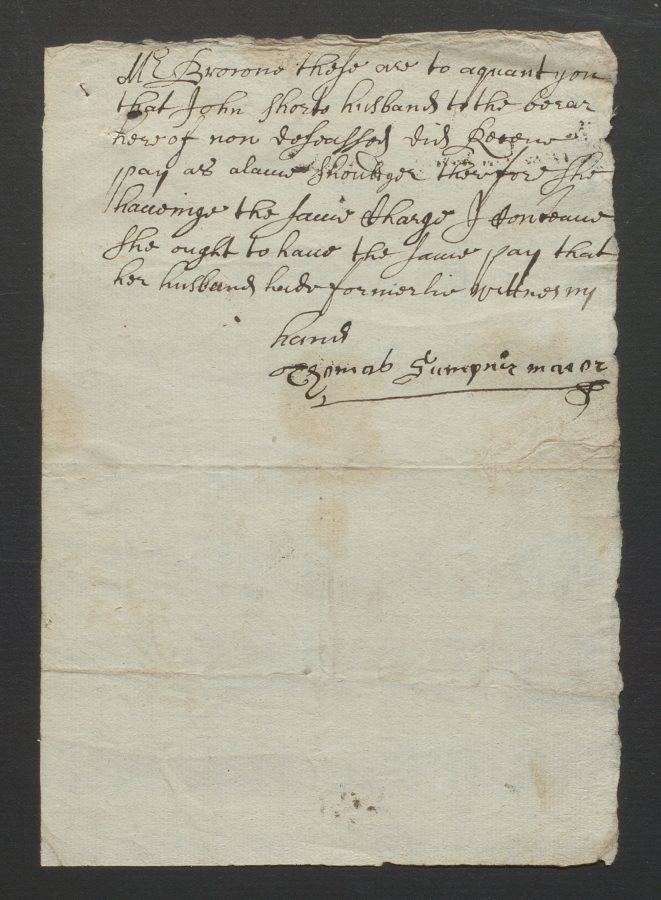 Mr Browne these are to aquant you
that John Shorte husband to the berar
hereof now deseassed did Receue
pay as a lame therefore she
haueinge the same Charge I Conceaue
she ought to haue the same pay that
her husband hade formerlie wittnes my
hand
Thomas maior